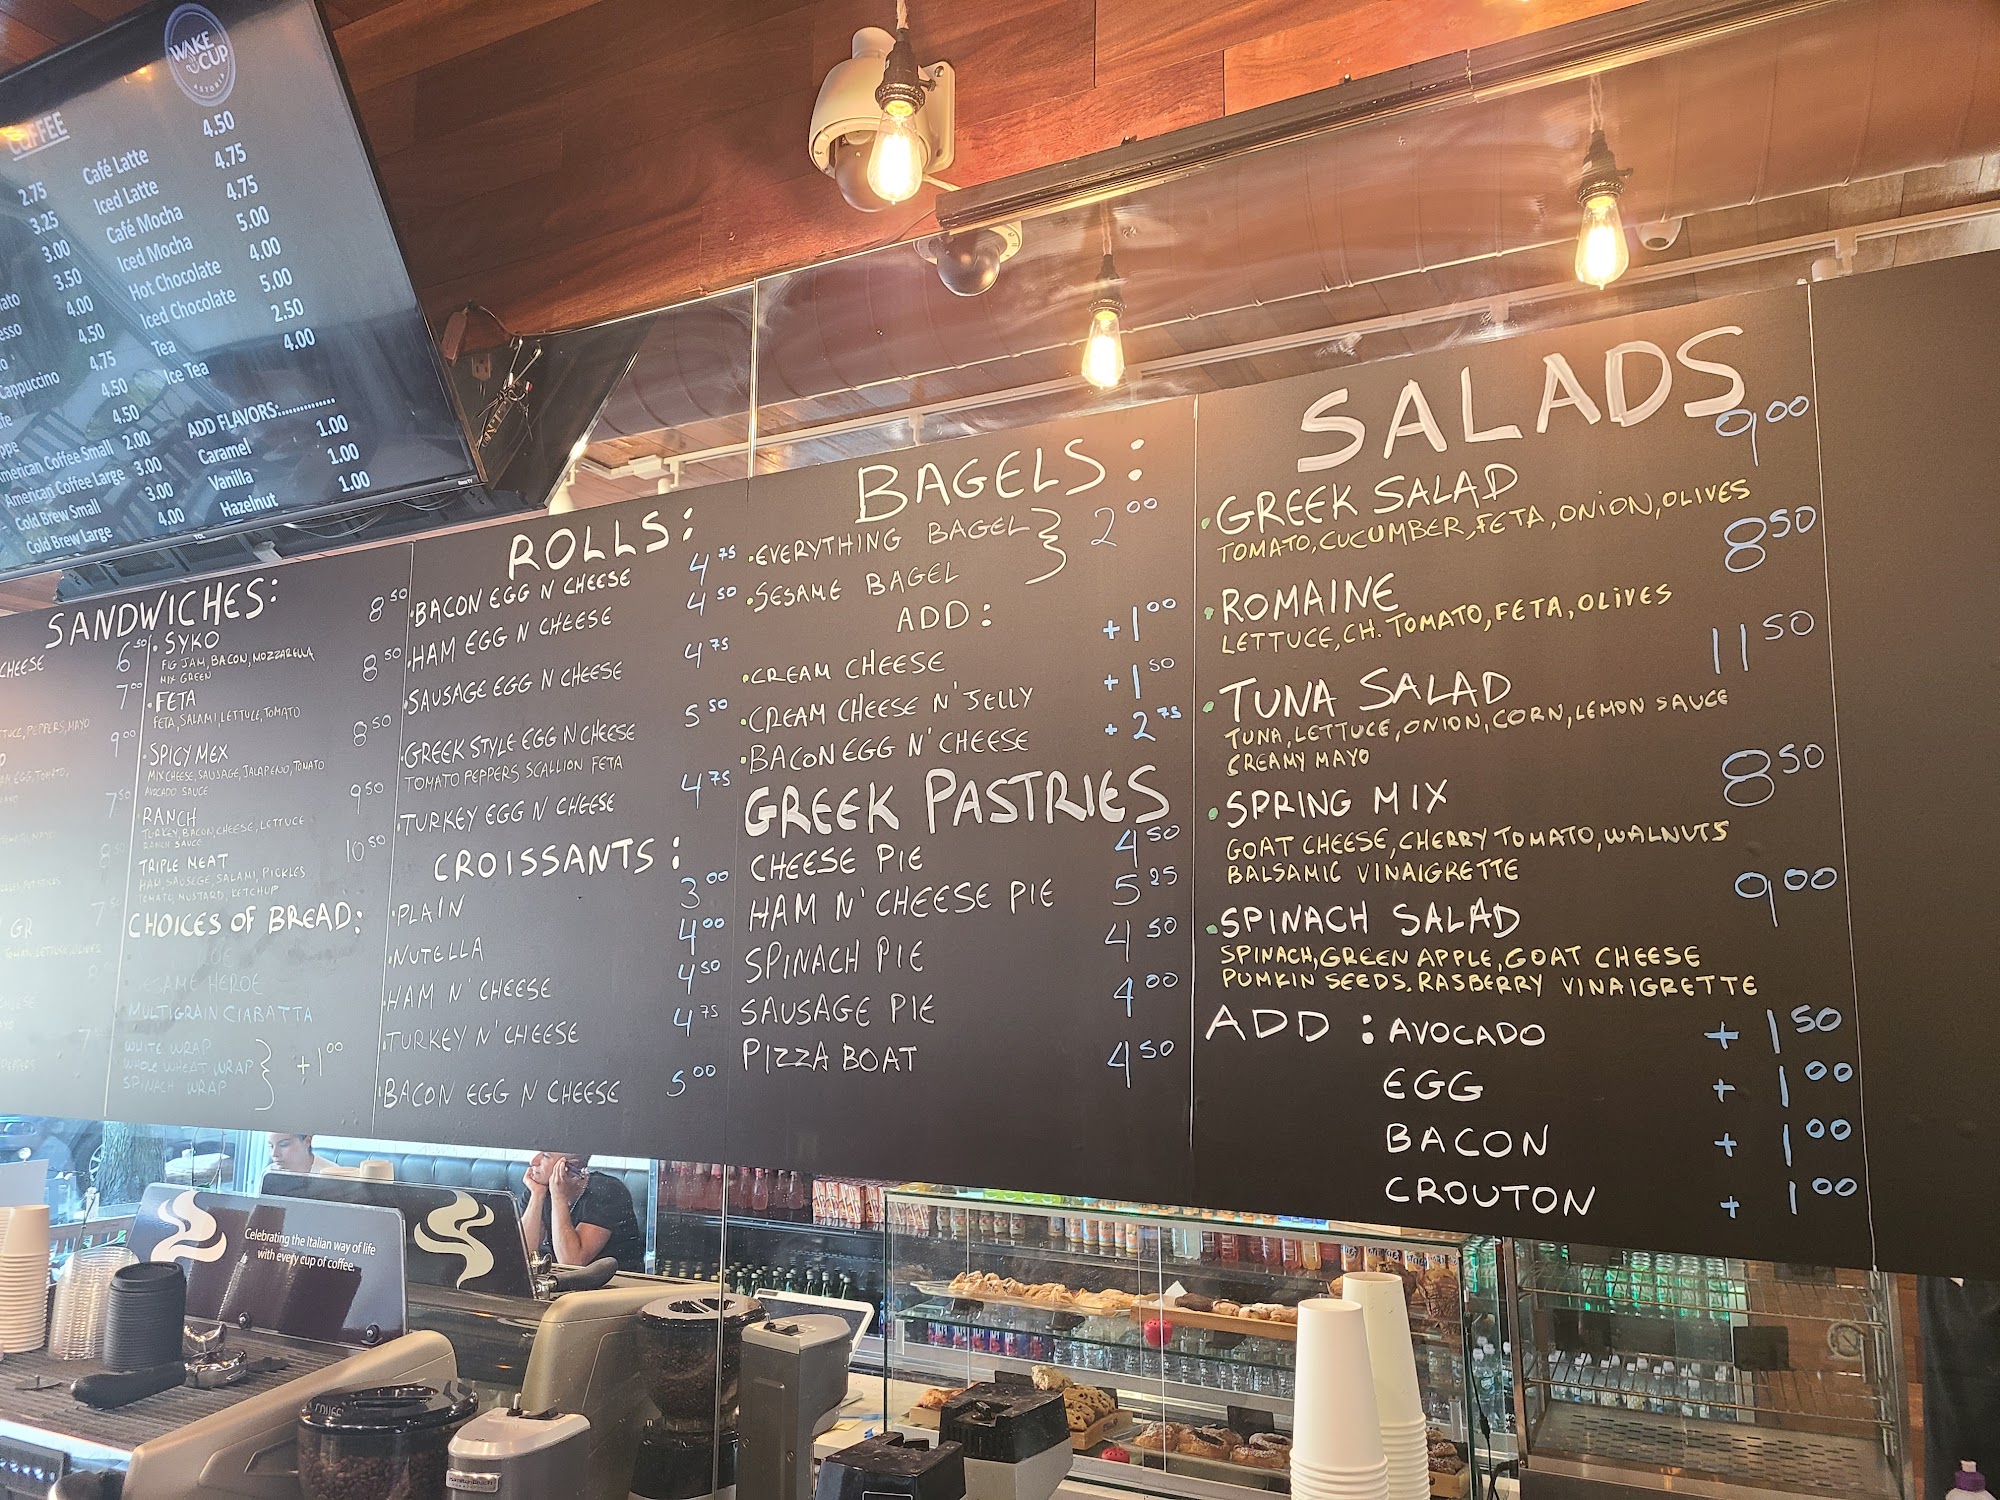 WAKE
CUP
ASTORIA
COFFEE
2.75 Café Latte 4.50
3.25 Iced Latte 4.75
3.00 Café Mocha 4.75
3.50 Iced Mocha 5.00
4.00 Hot Chocolate 4.00
4.50 Iced Chocolate 5.00
4.75 Tea 2.50
Cappuccino 4.50 Ice Tea 4.00
4.50
American Coffee Small 2.00
American Coffee Large 3.00
Cold Brew Small 3.00
Cold Brew Large 4.00
ADD FLAVORS:...............
Caramel 1.00
Vanilla 1.00
Hazelnut 1.00
SANDWICHES:
CHEESE 6.50
7.00
PEPPERS, MAYO
9.00
EGG, TOMATO,
7.50
· SYKO 8.50
FIG JAM, BACON, MOZZARELLA
MIX GREEN
· FETA 8.50
FETA, SALAMI, LETTUCE, TOMATO
· SPICY MEX 8.50
MIX CHEESE, SAUSAGE, JALAPENO, TOMATO
AVOCADO SAUCE
· RANCH 9.50
TURKEY, BACON, CHEESE, LETTUCE
RANCH SAUCE
TRIPLE MEAT 10.50
HAM, SAUSEGE, SALAMI, PICKLES
TOMATO, MUSTARD, KETCHUP
CHOICES OF BREAD:
SESAME HEROE
MULTIGRAIN CIABATTA
WHITE WRAP
WHOLE WHEAT WRAP + 1.00
SPINACH WRAP
ROLLS:
· BACON EGG N CHEESE 4.75
· HAM EGG N CHEESE 4.50
· SAUSAGE EGG N CHEESE 4.75
· GREEK STYLE EGG N CHEESE 5.50
TOMATO PEPPERS SCALLION FETA
· TURKEY EGG N CHEESE 4.75
CROISSANTS:
· PLAIN 3.00
· NUTELLA 4.00
· HAM N' CHEESE 4.50
· TURKEY N' CHEESE 4.75
· BACON EGG N CHEESE 5.00
BAGELS:
· EVERYTHING BAGEL 2.00
· SESAME BAGEL
ADD:
· CREAM CHEESE + 1.00
· CREAM CHEESE N' JELLY + 1.50
· BACON EGG N' CHEESE + 2.75
GREEK PASTRIES
CHEESE PIE 4.50
HAM N' CHEESE PIE 5.25
SPINACH PIE 4.50
SAUSAGE PIE 4.00
PIZZA BOAT 4.50
SALADS
· GREEK SALAD 9.00
TOMATO, CUCUMBER, FETA, ONION, OLIVES
· ROMAINE 8.50
LETTUCE, CH. TOMATO, FETA, OLIVES
· TUNA SALAD 11.50
TUNA, LETTUCE, ONION, CORN, LEMON SAUCE
CREAMY MAYO
· SPRING MIX 8.50
GOAT CHEESE, CHERRY TOMATO, WALNUTS
BALSAMIC VINAIGRETTE
· SPINACH SALAD 9.00
SPINACH, GREEN APPLE, GOAT CHEESE
PUMKIN SEEDS. RASBERRY VINAIGRETTE
ADD : AVOCADO + 1.50
EGG + 1.00
BACON + 1.00
CROUTON + 1.00
Celebrating the Italian way of life
with every cup of coffee.